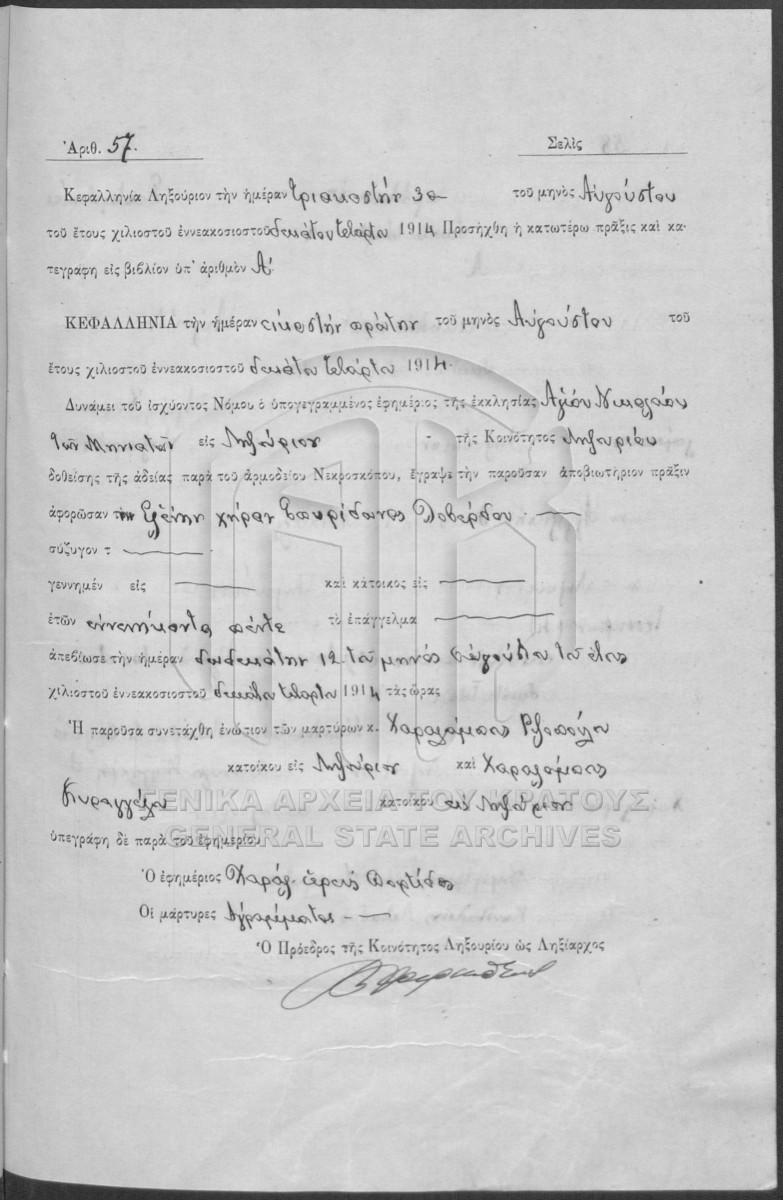 Ἀριθ. 57. Σελὶς
Κεφαλληνία Ληξούριον τὴν ἡμέραν τριακοστήν 30 τοῦ μηνὸς Αὐγούστου
τοῦ ἔτους χιλιοστοῦ ἐννεακοσιοστοῦ δεκάτου τετάρτου 1914 Προσήχθη ἡ κατωτέρω πρᾶξις καὶ κα-
τεγράφη εἰς βιβλίον ὑπ' ἀριθμὸν Α'.
ΚΕΦΑΛΛΗΝΙΑ τὴν ἡμέραν εἰκοστήν πρώτην τοῦ μηνὸς Αὐγούστου τοῦ
ἔτους χιλιοστοῦ ἐννεακοσιοστοῦ δεκάτου τετάρτου 1914.
Δυνάμει τοῦ ἰσχύοντος Νόμου ὁ ὑπογεγραμμένος ἐφημέριος τῆς ἐκκλησίας Ἁγίου Νικολάου
τῶν Μηνιατῶν εἰς Ληξούριον - τῆς Κοινότητος Ληξουρίου
δοθείσης τῆς ἀδείας παρὰ τοῦ ἁρμοδείου Νεκροσκόπου, ἔγραψε τὴν παροῦσαν ἀποβιωτήριον πρᾶξιν
ἀφορῶσαν την Ἑλένην χήραν Σπυρίδωνος Λοβέρδου
σύζυγον τ
γεννημέν εἰς καὶ κάτοικος εἰς
ἐτῶν ἐννενήκοντα πέντε τὸ ἐπάγγελμα
ἀπεβίωσε τὴν ἡμέραν δωδεκάτην 12 τοῦ μηνός Αὐγούστου τοῦ ἔτους
χιλιοστοῦ ἐννεακοσιοστοῦ δεκάτου τετάρτου 1914 τὰς ὥρας
Ἡ παροῦσα συνετάχθη ἐνώπιον τῶν μαρτύρων κ. Χαραλάμπους Ριζοπούλου
κατοίκου εἰς Ληξούριον καὶ Χαραλάμπους
Κυραγγέλου κατοίκου εἰς Ληξούριον
ὑπεγράφη δὲ παρὰ τοῦ ἐφημερίου
Ὁ ἐφημέριος Χαράλ. ἱερεύς
Οἱ μάρτυρες Ἀγράμματος
Ὁ Πρόεδρος τῆς Κοινότητος Ληξουρίου ὡς Ληξίαρχος
ΓΕΝΙΚΑ ΑΡΧΕΙΑ ΤΟΥ ΚΡΑΤΟΥΣ
GENERAL STATE ARCHIVES